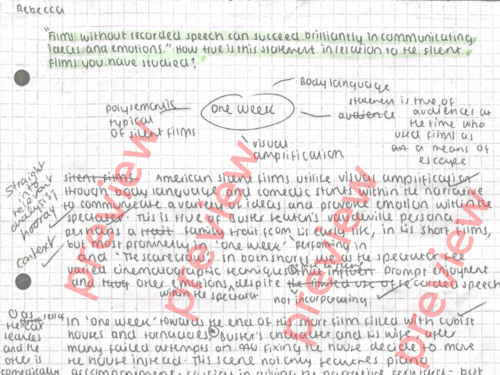 Rebecca
"Films without recorded speech can succeed brilliantly in communicating
ideas and emotions." How true is this statement in relation to the silent
films you have studied?
Body language
polysemic
typical
of silent films
one week
statement is true of
audience audiences at
the time who
used films as
a means of
escape
visual
amplification
Straight
into
relevant
analysis
hooray
context
silent films American silent films utilise visual amplification
though body language and comedic stunts within the narrative
to communicate a variety of ideas and provoke emotion within the
spectator. This is true of Buster Keaton's vaudeville persona,
perhaps a trait family trait from his early life, in his short films,
but most prominently in 'one week' performing in
and 'The scarecrow'. In both shorts, we the spectator see
varied cinematographic techniques prompt enjoyment
and other emotions, despite the limited use of recorded speech
within the spectator not incorporating
In 'one week' towards the end of this short film filled with cubist
houses and tornadoes, Buster's character and his wife, after
many failed attempts on fixing the house decide to move
the house instead. This scene not only features piano
as
leaves
and the
other is
comedically accompaniment
preview
preview
preview
preview
preview